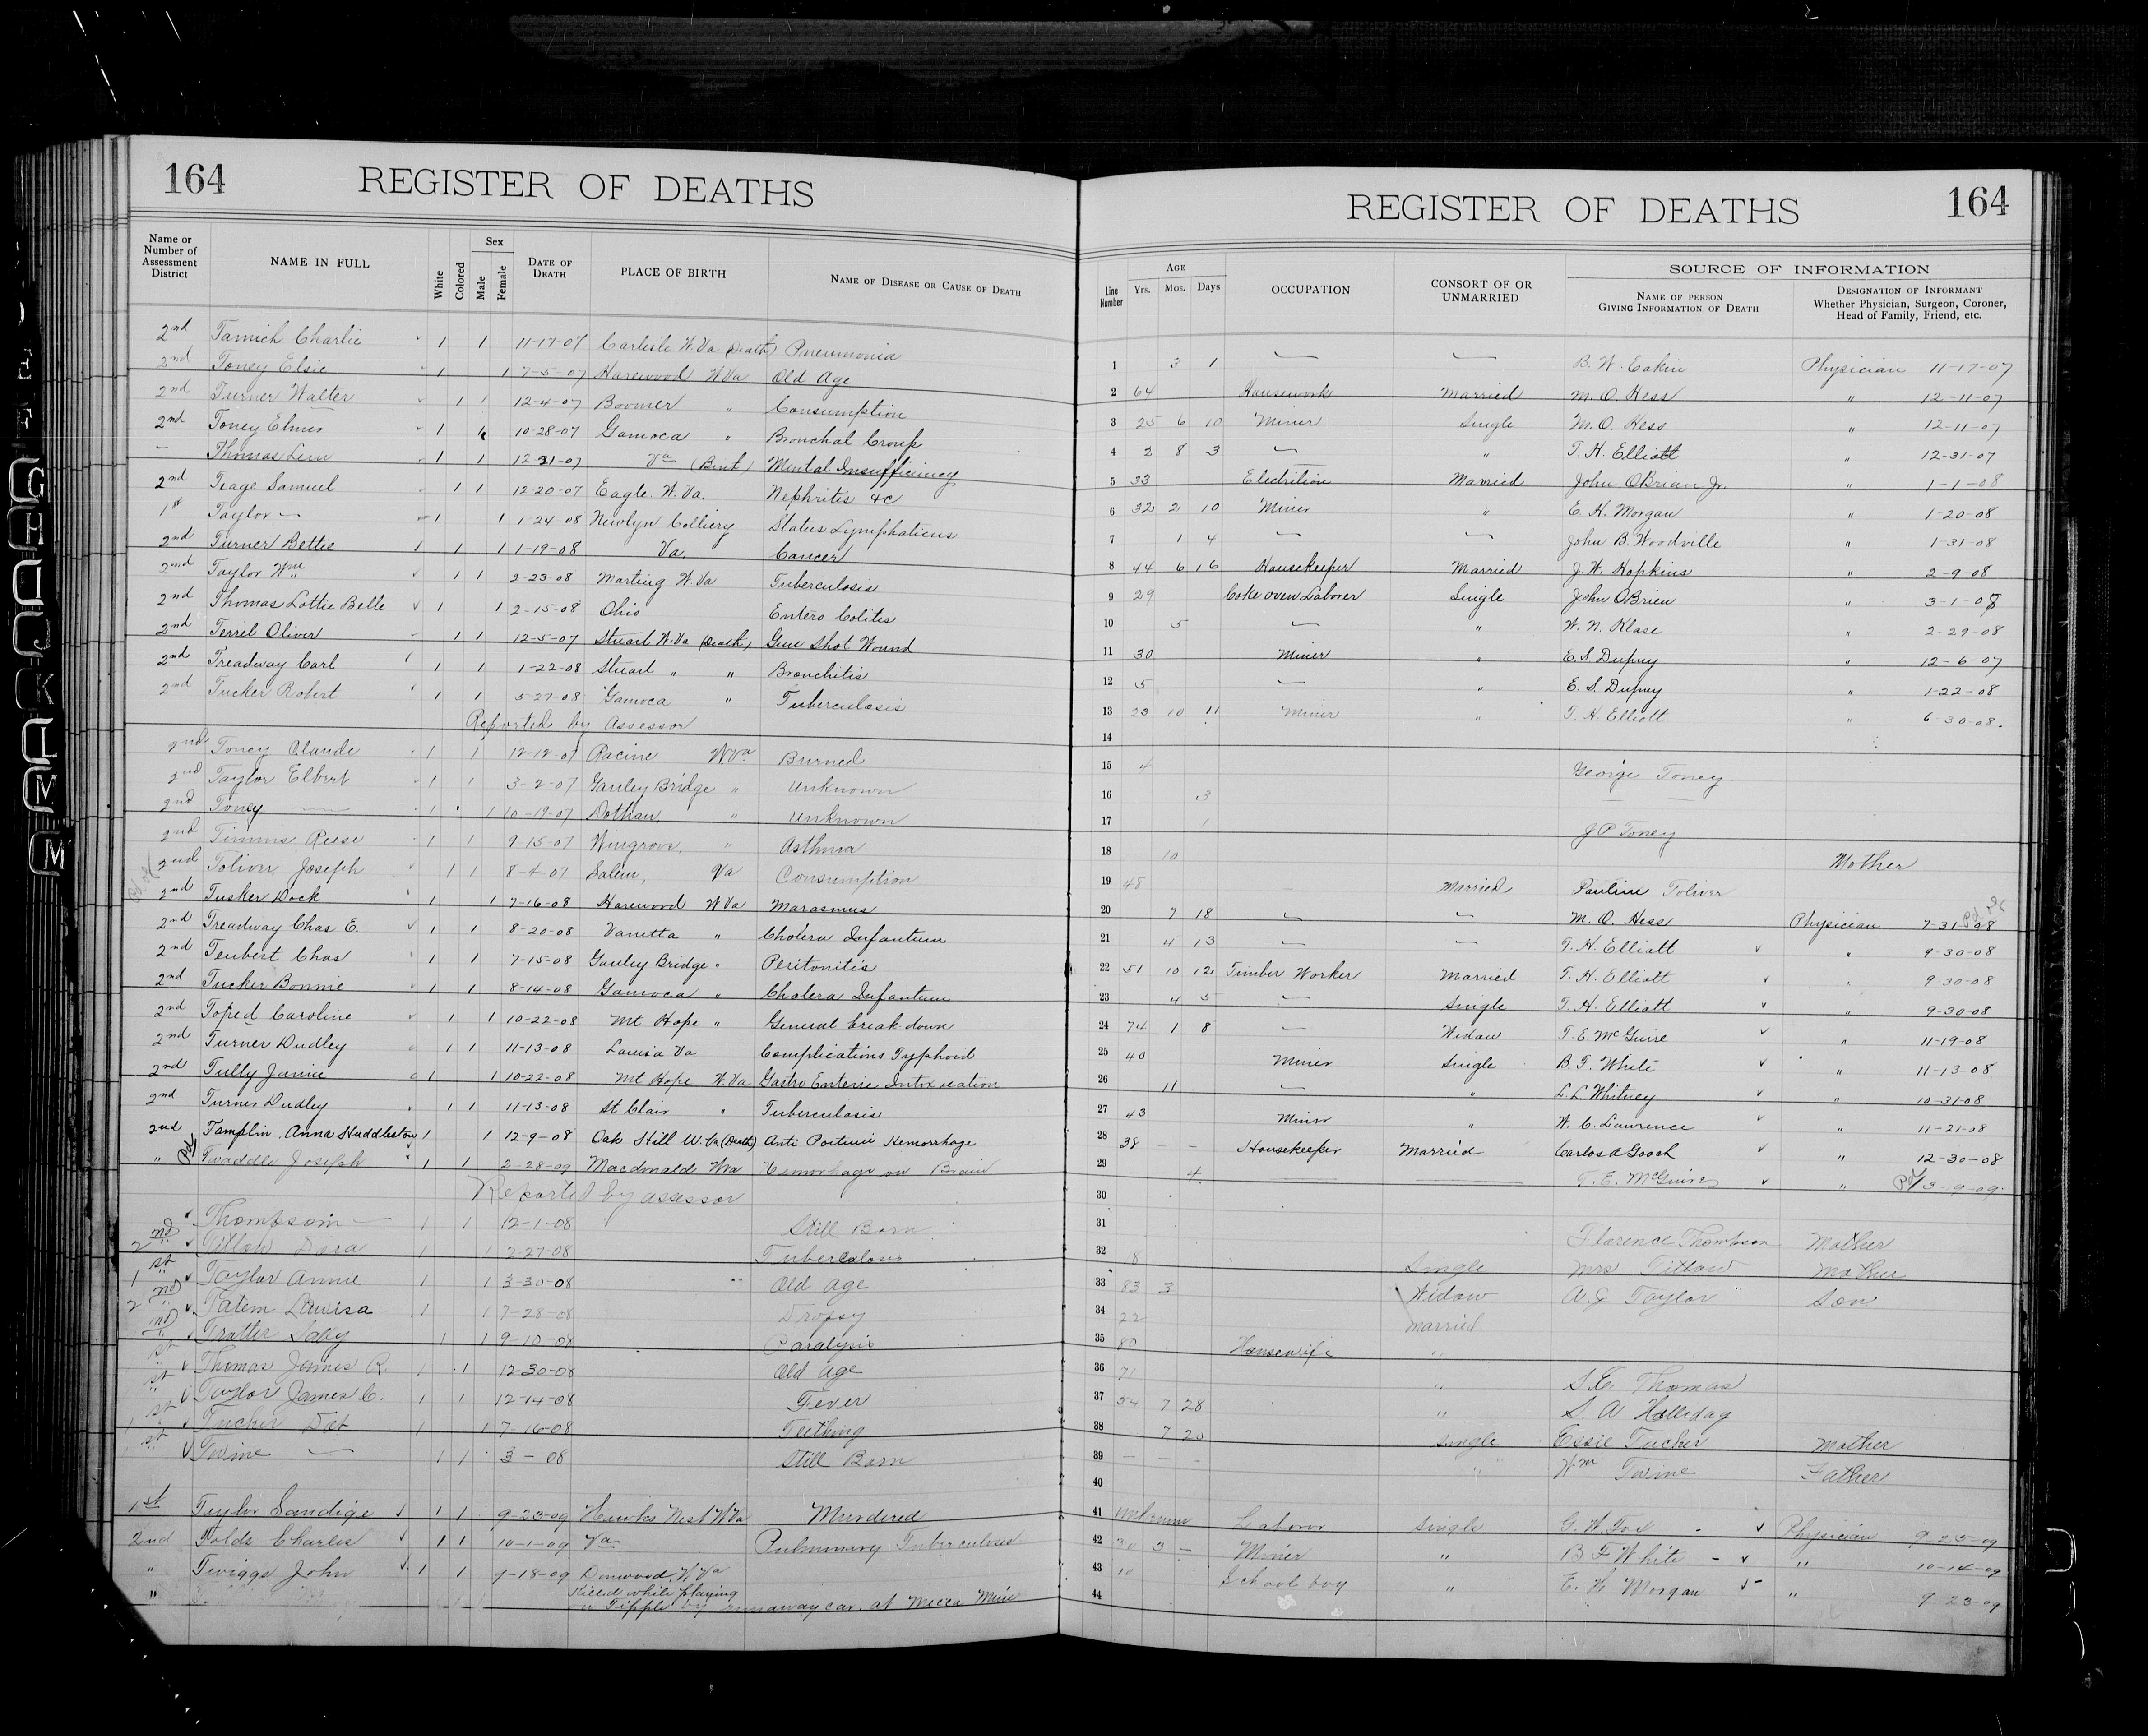 164 REGISTER OF DEATHS
Name or Number of Assessment District NAME IN FULL White Colored Sex Male Female DATE OF DEATH PLACE OF BIRTH NAME OF DISEASE OR CAUSE OF DEATH
2nd Tamich Charlie 1 1 11-17-07 Carlisle W.Va (Death) Pneumonia
2nd Toney Elsie 1 1 7-5-07 Harewood W Va Old Age
2nd Turner Walter 1 1 12-4-07 Boomer " Consumption
2nd Toney Elmer 1 10-28-07 Gamoca " Bronchal Croup
— Thomas Lem 1 1 12-31-07 Va (Birth) Mental Insufficiency
2nd Trage Samuel 1 1 12-20-07 Eagle W.Va. Nephritis &c
1st Taylor — 1 1 1-24-08 Newlyn Colliery Status Lymphaticus
2nd Turner Bettie 1 1 1-19-08 Va. Cancer
2nd Taylor Wm 1 1 2-23-08 Marting W.Va Tuberculosis
2nd Thomas Lottie Belle 1 1 2-15-08 Ohio Entero Colitis
2nd Terrel Oliver 1 1 12-5-07 Stuart W.Va (Death) Gun Shot Wound
2nd Treadway Carl 1 1 1-22-08 Stuart " " Bronchitis
2nd Tucker Robert 1 1 5-27-08 Gamoca " Tuberculosis
Reported by Assessor
2nd Toney Claude 1 1 12-12-07 Racine W Va Burned
2nd Taylor Elbert 1 1 3-2-07 Gauley Bridge " Unknown
2nd Toney — 1 1 10-19-07 Dothan " Unknown
2nd Timmis Reese 1 1 9-15-07 Wingrove " Asthma
2nd Toliver, Joseph 1 1 8-4-07 Salem, Va Consumption
2nd Tusker Dock 1 1 7-16-08 Harewood W Va Marasmus
2nd Treadway Chas E. 1 1 8-20-08 Vanetta " Cholera Infantum
2nd Teubert Chas 1 1 7-15-08 Gauley Bridge " Peritonitis
2nd Tucker Bonnie 1 1 8-14-08 Gamoca " Cholera Infantum
2nd Toped Caroline 1 1 10-22-08 Mt Hope " General break down
2nd Turner Dudley 1 1 11-13-08 Louisa Va Complications Typhoid
2nd Tully Janie 1 1 10-22-08 Mt Hope W.Va Gastro Enteric Intoxication
2nd Turner Dudley 1 1 11-13-08 St Clair " Tuberculosis
2nd Tamplin, Anna Huddleston 1 1 12-9-08 Oak Hill W.Va (Death) Anti Partum Hemorrhage
" Twaddle Joseph 1 1 2-28-09 Macdonald W Va Hemorhage on Brain
Reported by assessor
Thompson — 1 1 12-1-08 Still Born
2nd Titlow Dora 1 1 2-27-08 Tuberculosis
1st Taylor Annie 1 1 3-30-08 Old age
2nd Tatem Louisa 1 1 7-28-08 Dropsy
Tratter 1 1 9-10-08 Paralysis
Thomas James R. 1 1 12-30-08 Old age
Taylor James C. 1 1 12-14-08 Fever
Tucker 1 1 7-16-08 Teething
Twine — 1 1 3-08 Still Born
1st Taylor Sandige 1 1 9-23-09 Hawks Nest W Va Murdered
2nd Tolds Charles 1 1 10-1-09 Va Pulmonary Tuberculosis
" Twiggs John 1 1 9-18-09 Donwood, W Va
" Killed while playing
on Tipple by runaway car at Mecca Mine
REGISTER OF DEATHS 164
Line Number AGE Yrs. Mos. Days OCCUPATION CONSORT OF OR UNMARRIED SOURCE OF INFORMATION NAME OF PERSON GIVING INFORMATION OF DEATH DESIGNATION OF INFORMANT Whether Physician, Surgeon, Coroner, Head of Family, Friend, etc.
1 3 1 — — B. W. Eakin Physician 11-17-07
2 64 Housework Married M. O. Hess " 12-11-07
3 25 6 10 Miner Single M. O. Hess " 12-11-07
4 2 8 3 — " T. H. Elliott " 12-31-07
5 33 Electrition Married John OBrian Jr. " 1-1-08
6 32 2 10 Miner " E. H. Morgan " 1-20-08
7 1 4 — — John B. Woodville " 1-31-08
8 44 6 16 Housekeeper Married J. W. Hopkins " 2-9-08
9 29 Coke oven Laborer Single John OBrien " 3-1-08
10 5 — " W. N. Klase " 2-29-08
11 30 Miner " E. S. Dupuy " 12-6-07
12 5 — " E. S. Dupuy " 1-22-08
13 23 10 11 Miner " T. H. Elliott " 6-30-08.
14
15 4 George Toney
16 3 — —
17 1 J P Toney
18 10 Mother
19 48 — Married Pauline Toliver
20 7 18 — — M. O. Hess Physician 7-31-08
21 4 13 — — T. H. Elliott " 9-30-08
22 51 10 12 Timber Worker Married T. H. Elliott " 9-30-08
23 4 5 — Single T. H. Elliott " 9-30-08
24 74 1 8 — Widow T. E. McGuire " 11-19-08
25 40 Miner Single B. F. White " 11-13-08
26 11 — " L. L. Whitney " 10-31-08
27 43 Miner " W. C. Lawrence " 11-21-08
28 38 — Housekeeper Married Carlos A Gooch " 12-30-08
29 4 — — T. E. McGuire " 3-9-09
30
31 Florence Thompson Mother
32 18 Single Mrs Titlow Mother
33 83 3 Widow A. J Taylor Son
34 22 Married
35 80 Housewife "
36 71 " S. E. Thomas
37 54 7 28 " S. A Holliday
38 7 20 Single Essie Tucker Mother
39 — — — " Wm Twine Father
40
41 Unknown Laborer Single Physician 9-25-09
42 30 3 — Miner " B F White " 10-14-09
43 10 School boy " E. H. Morgan " 9-23-09
44